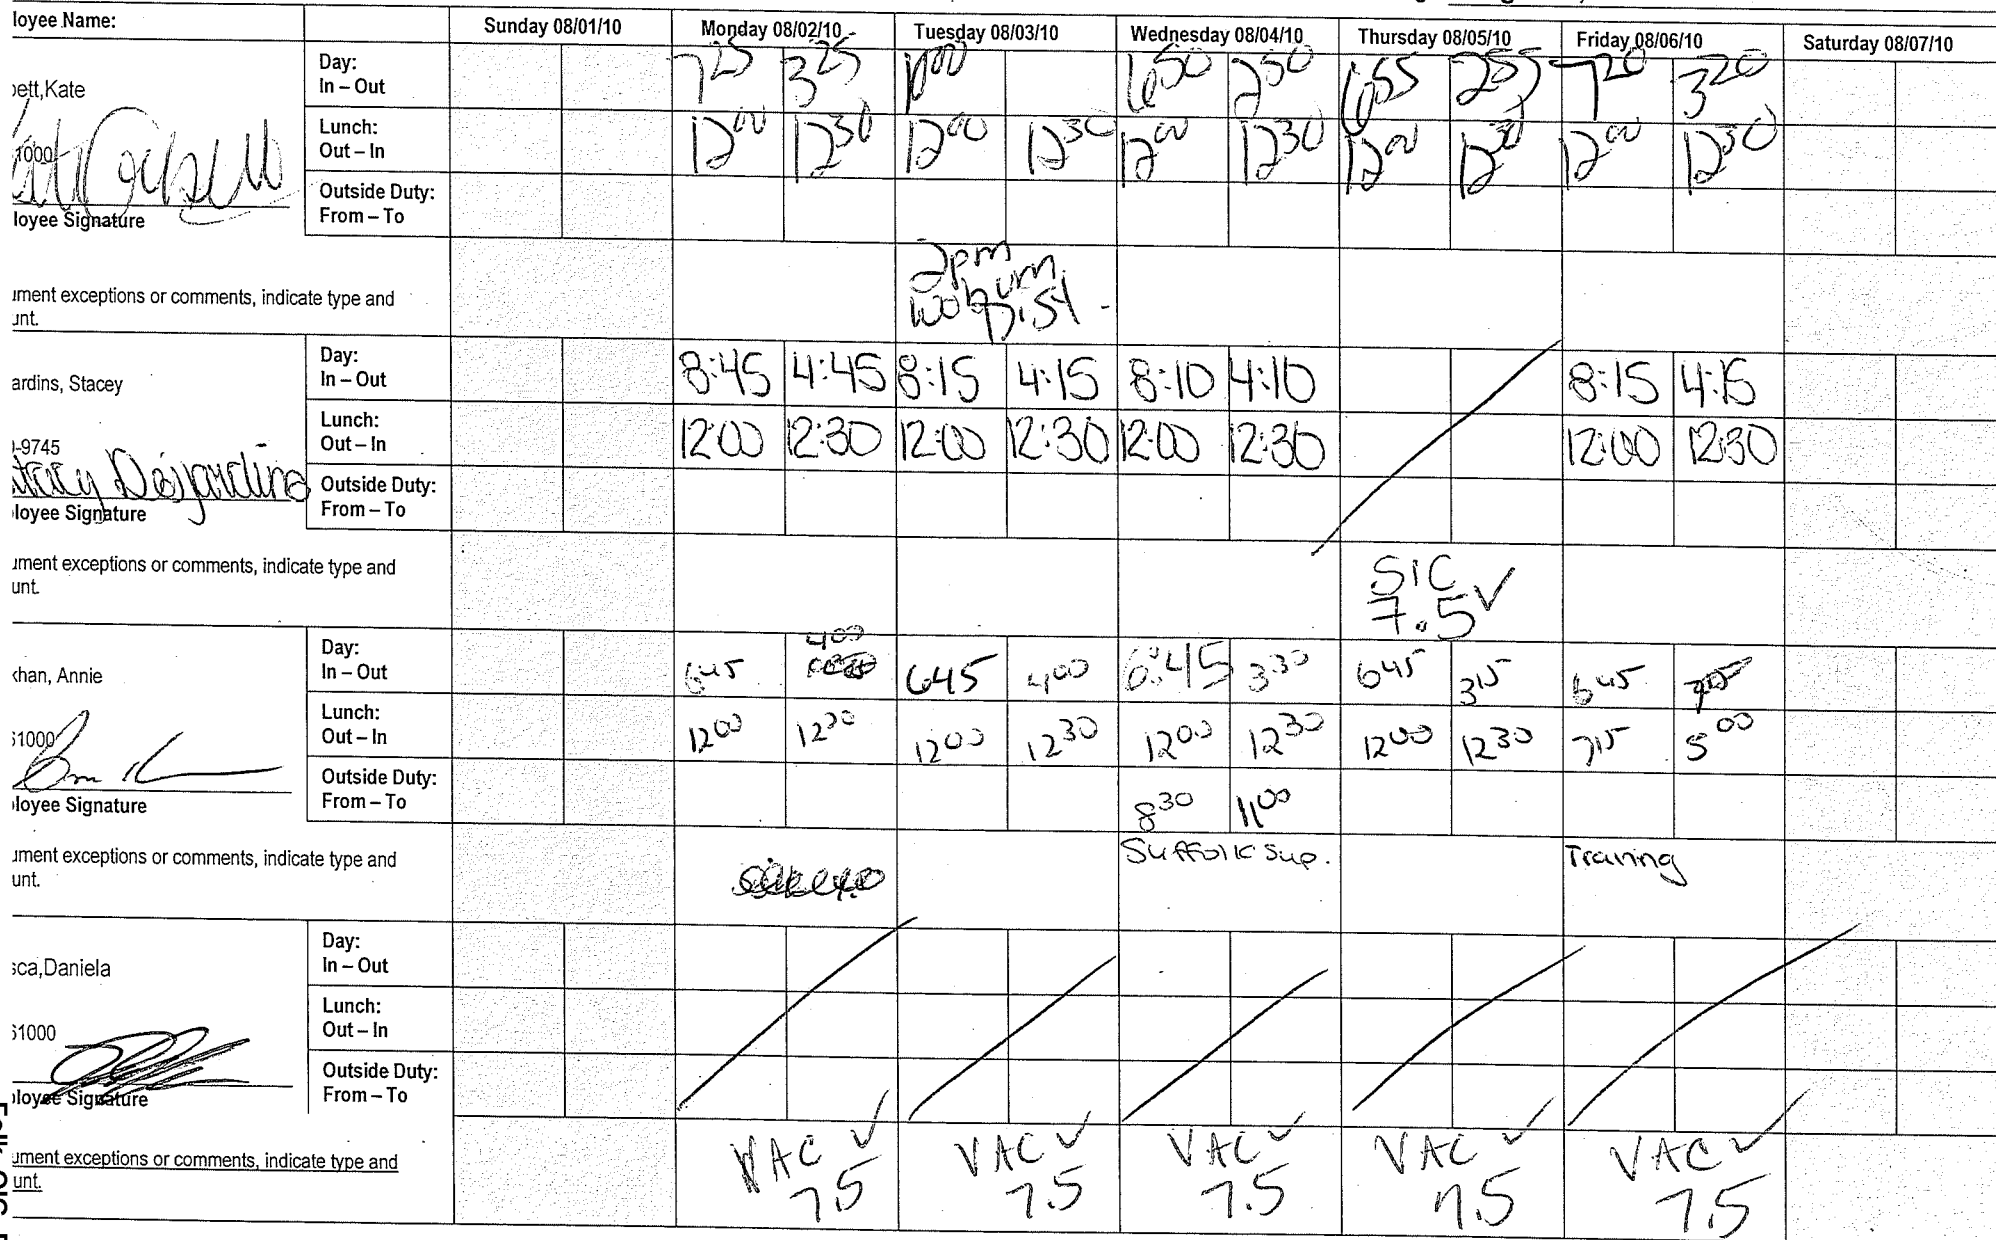 loyee Name:
Sunday 08/01/10 Monday 08/02/10 Tuesday 08/03/10 Wednesday 08/04/10 Thursday 08/05/10 Friday 08/06/10 Saturday 08/07/10
ett,Kate
Day:
In – Out
7 25 3 25 6 50 2 50 6 55 2 55 7 20 3 20
1000
Lunch:
Out – In
12 00 12 30 12 00 12 30 12 00 12 30 12 00 12 30 12 00 12 30
Outside Duty:
From – To
loyee Signature
2pm
woburn
Dist
ument exceptions or comments, indicate type and
unt.
ardins, Stacey
Day:
In – Out
8:45 4:45 8:15 4:15 8:10 4:10 8:15 4:15
-9745
Lunch:
Out – In
12:00 12:30 12:00 12:30 12:00 12:30 12:00 12:30
Stacy Desjardins
Outside Duty:
From – To
loyee Signature
ument exceptions or comments, indicate type and
unt.
SIC
7.5 ✓
khan, Annie
Day:
In – Out
6 45 4 00 6 45 4 00 6:45 3 30 6 45 3 15 6 45
51000
Lunch:
Out – In
12 00 12 30 12 00 12 30 12 00 12 30 12 00 12 30 7 15 5 00
Outside Duty:
From – To
8 30 11 00
loyee Signature
ument exceptions or comments, indicate type and
unt.
Suffolk Sup. Training
sca,Daniela
Day:
In – Out
51000
Lunch:
Out – In
Outside Duty:
From – To
loyee Signature
ument exceptions or comments, indicate type and
unt.
VAC ✓ VAC ✓ VAC ✓ VAC ✓ VAC ✓
7.5 7.5 7.5 7.5 7.5